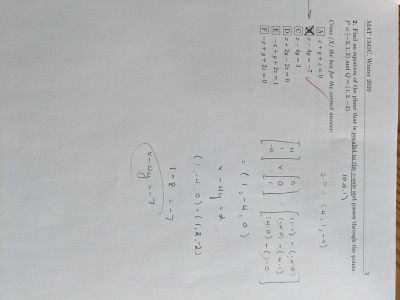 MAT 1341C, Winter 2020
3
2. Find an equation of the plane that is parallel to the z-axis and passes through the points
P = (−3, 1, 2) and Q = (1, 2, −2).
(0,0,1)
Cross (X) the box for the correct answer:
A x + y + z = 0
B x − 4y = −7
C x − 4y = 3
D x + 2y − 2z = 0
E −x + y + 2z = 1
F −x + y + 2z = 0
(4, 1, −4)
= (1, −4, 0)
x − 4y = d
(1, −4, 0) · (1, 2, −2)
1 − 8 = −7
x − 4y = −7